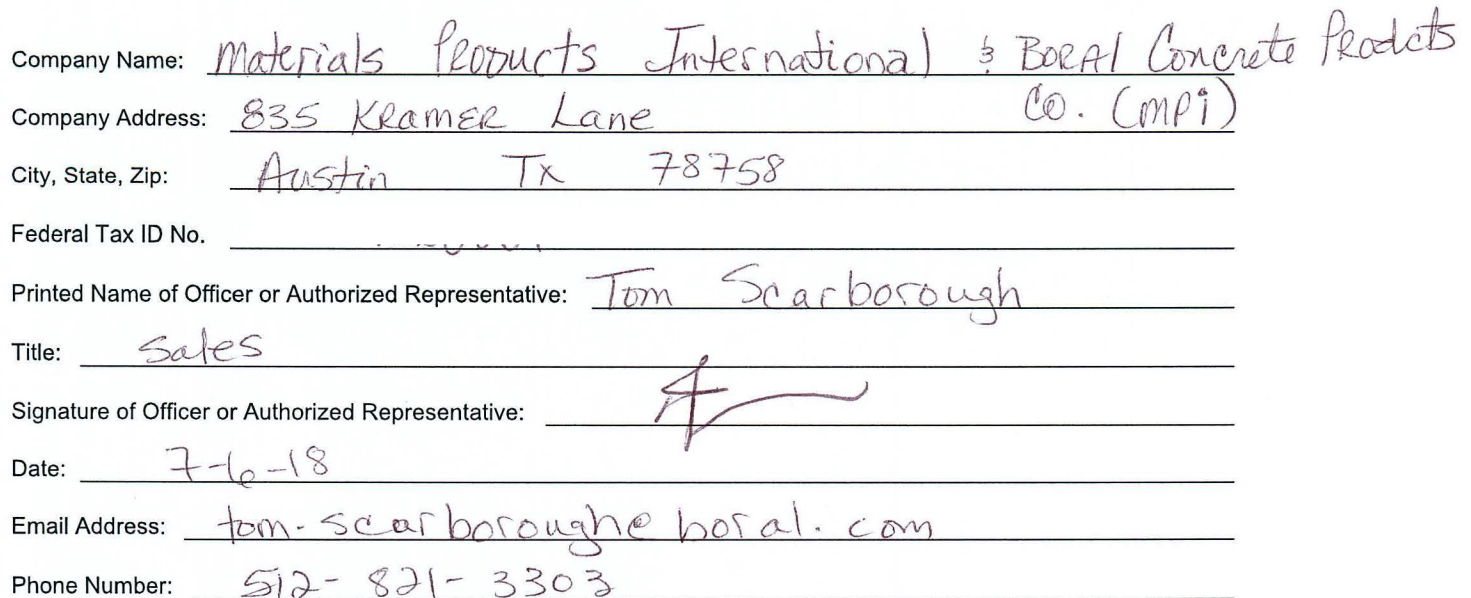 Company Name: Materials Products International & BORAl Concrete Prodcts
Company Address: 835 Kramer Lane Co. (MPi)
City, State, Zip: Austin Tx 78758
Federal Tax ID No.
Printed Name of Officer or Authorized Representative: Tom Scarborough
Title: Sales
Signature of Officer or Authorized Representative:
Date: 7-6-18
Email Address: tom.scarborough@boral.com
Phone Number: 512-821-3303